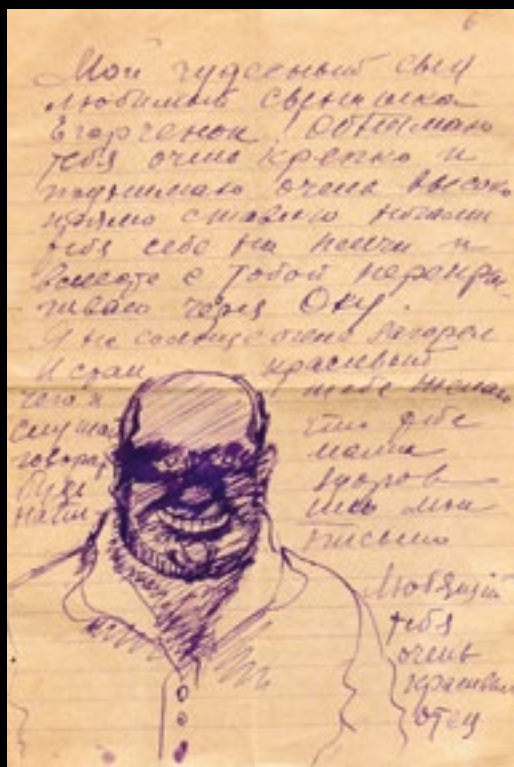 6
Мой чудесный сын
любимый сынишка
Егорченок! Обнимаю
тебя очень крепко и
поднимаю очень высоко
прямо ставлю ногами
тебя себе на плечи и
вместе с тобой перепры-
гиваю через Оку.
Я на солнце очень загорел
И стал красивый
чего и тебе желаю
Слушай что тебе
говорит мама
будь здоров
мои
письма
Любящий
тебя
очень
красивый
отец